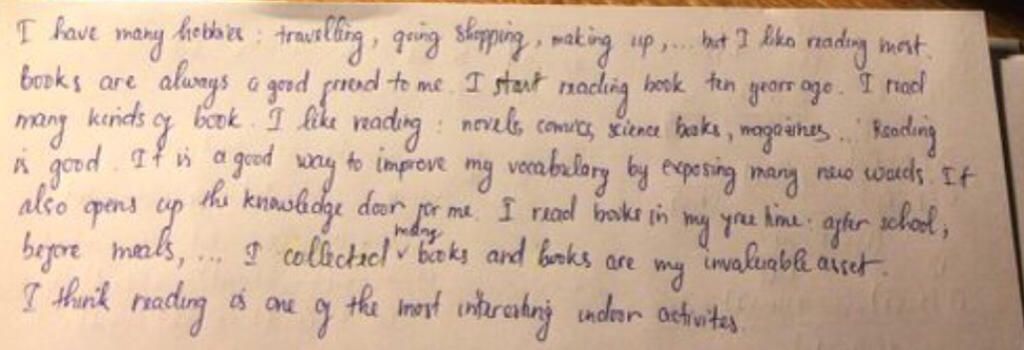 I have many hobbies : travelling, going shopping, making up,... but I like reading most.
books are always a good friend to me. I start reading book ten years ago. I read
many kinds of book. I like reading : novels, comics, science books, magazines... Reading
is good. It is a good way to improve my vocabulary by exposing many new words. It
also opens up the knowledge door for me. I read books in my free time. after school,
before meals, ... I collected many books and books are my invaluable asset.
I think reading is one of the most interesting indoor activites.